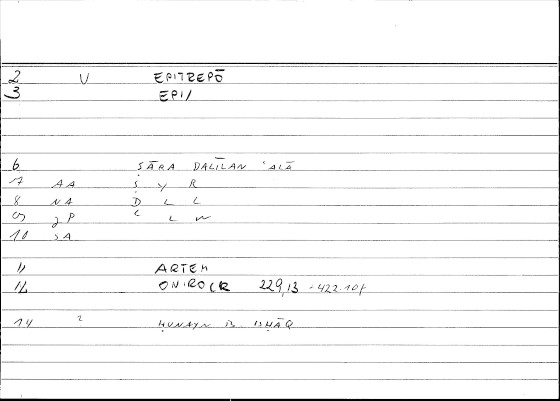 2 V EPITREPŌ
3 EPI/
6 ṢĀRA DALĪLAN ʿALĀ
7 AA Ṣ Y R
8 NA D L L
9 JP ʿ L W
10 SA
11 ARTEM
12 ONIROCR 229,13 - 422.10f
14 2 ḤUNAYN B. ISḤĀQ